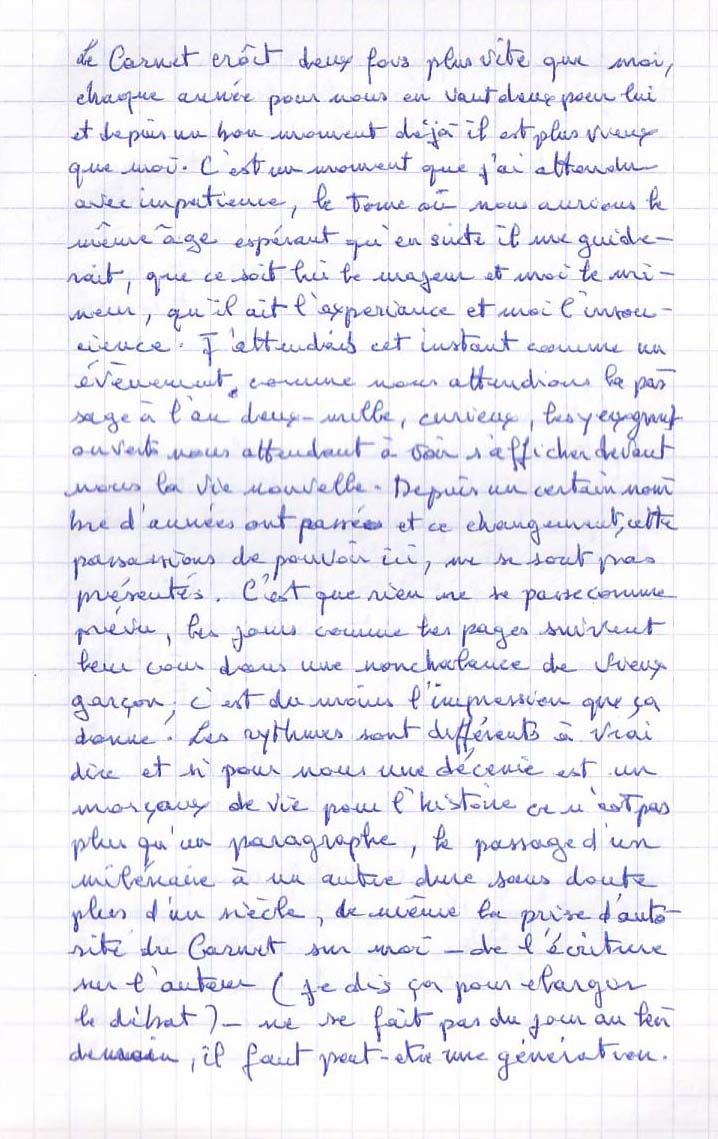 Le Carnet croît deux fois plus vite que moi,
chaque année pour nous en vaut deux pour lui
et depuis un bon moment déjà il est plus vieux
que moi. C'est un moment que j'ai attendu
avec impatience, le tome où nous aurions le
même âge espérant qu'ensuite il me guide-
rait, que ce soit lui le majeur et moi le mi-
neur, qu'il ait l'experiance et moi l'insou-
cience. J'attendais cet instant comme un
évènement, comme nous attendions le pas
sage à l'an deux-mille, curieux, les yeux grand
ouverts nous attendant à voir s'afficher devant
nous la vie nouvelle. Depuis un certain nom
bre d'années ont passées et ce changement, cette
passassions de pouvoir ici, ne se sont pas
présentés. C'est que rien ne se passe comme
prévu, les jours comme les pages suivent
leur cour dans une nonchalance de vieux
garçon, c'est du moins l'impression que ça
donne. Les rythmes sont différents à vrai
dire et si pour nous une décenie est un
morçaux de vie pour l'histoire ce n'est pas
plus qu'un paragraphe, le passage d'un
milénaire à un autre dure sans doute
plus d'un siècle, de même la prise d'auto-
rité du Carnet sur moi – de l'écriture
sur l'auteur (je dis ça pour elargir
le débat) – ne se fait pas du jour au len
demain, il faut peut-etre une génération.